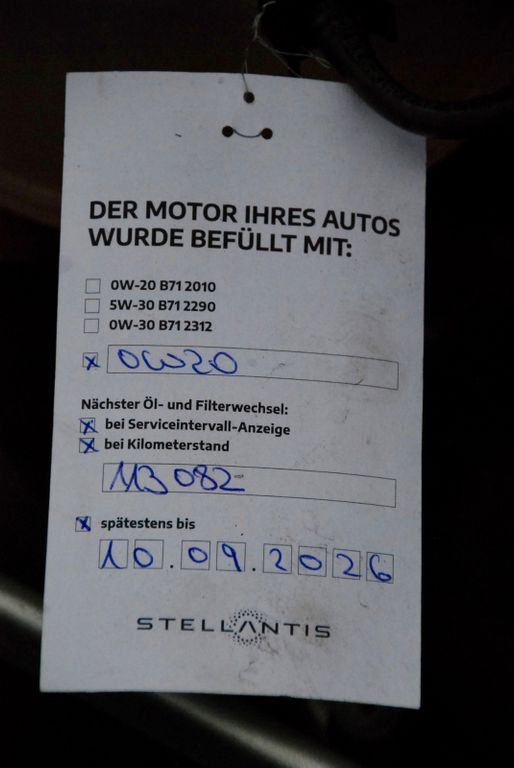 DER MOTOR IHRES AUTOS
WURDE BEFÜLLT MIT:
0W-20 B71 2010
5W-30 B71 2290
0W-30 B71 2312
x 0W20
Nächster Öl- und Filterwechsel:
x bei Serviceintervall-Anzeige
x bei Kilometerstand
113 082
x spätestens bis
10.09.2026
STELLANTIS